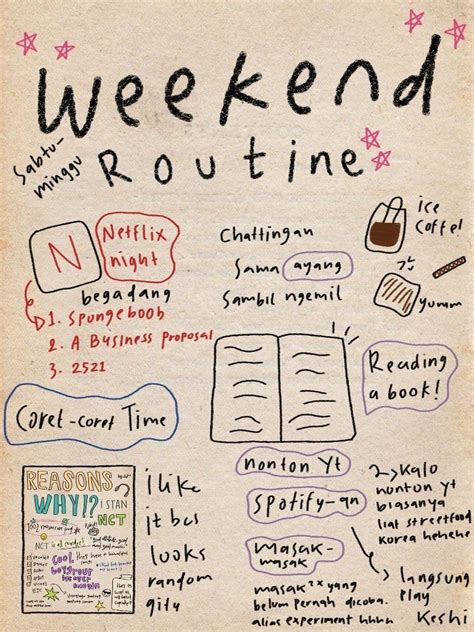 Weekend
Routine
Sabtu-
minggu
N
Netflix
night
begadang
1. Spungeboob
2. A Business Proposal
3. 2521
Chattingan
Sama ayang
Sambil ngemil
ice
coffel
yumm
Reading
a book!
Coret-coret Time
REASONS
WHY!?
I STAN
NCT
i like
it bcs
looks
random
gitu
nonton Yt
Spotify-an
masak-
masak
masak2x yang
belum pernah dicoba.
alias experiment hhhh
kalo
nonton yt
biasanya
liat streetfood
korea hehehe
langsung
play
Keshi